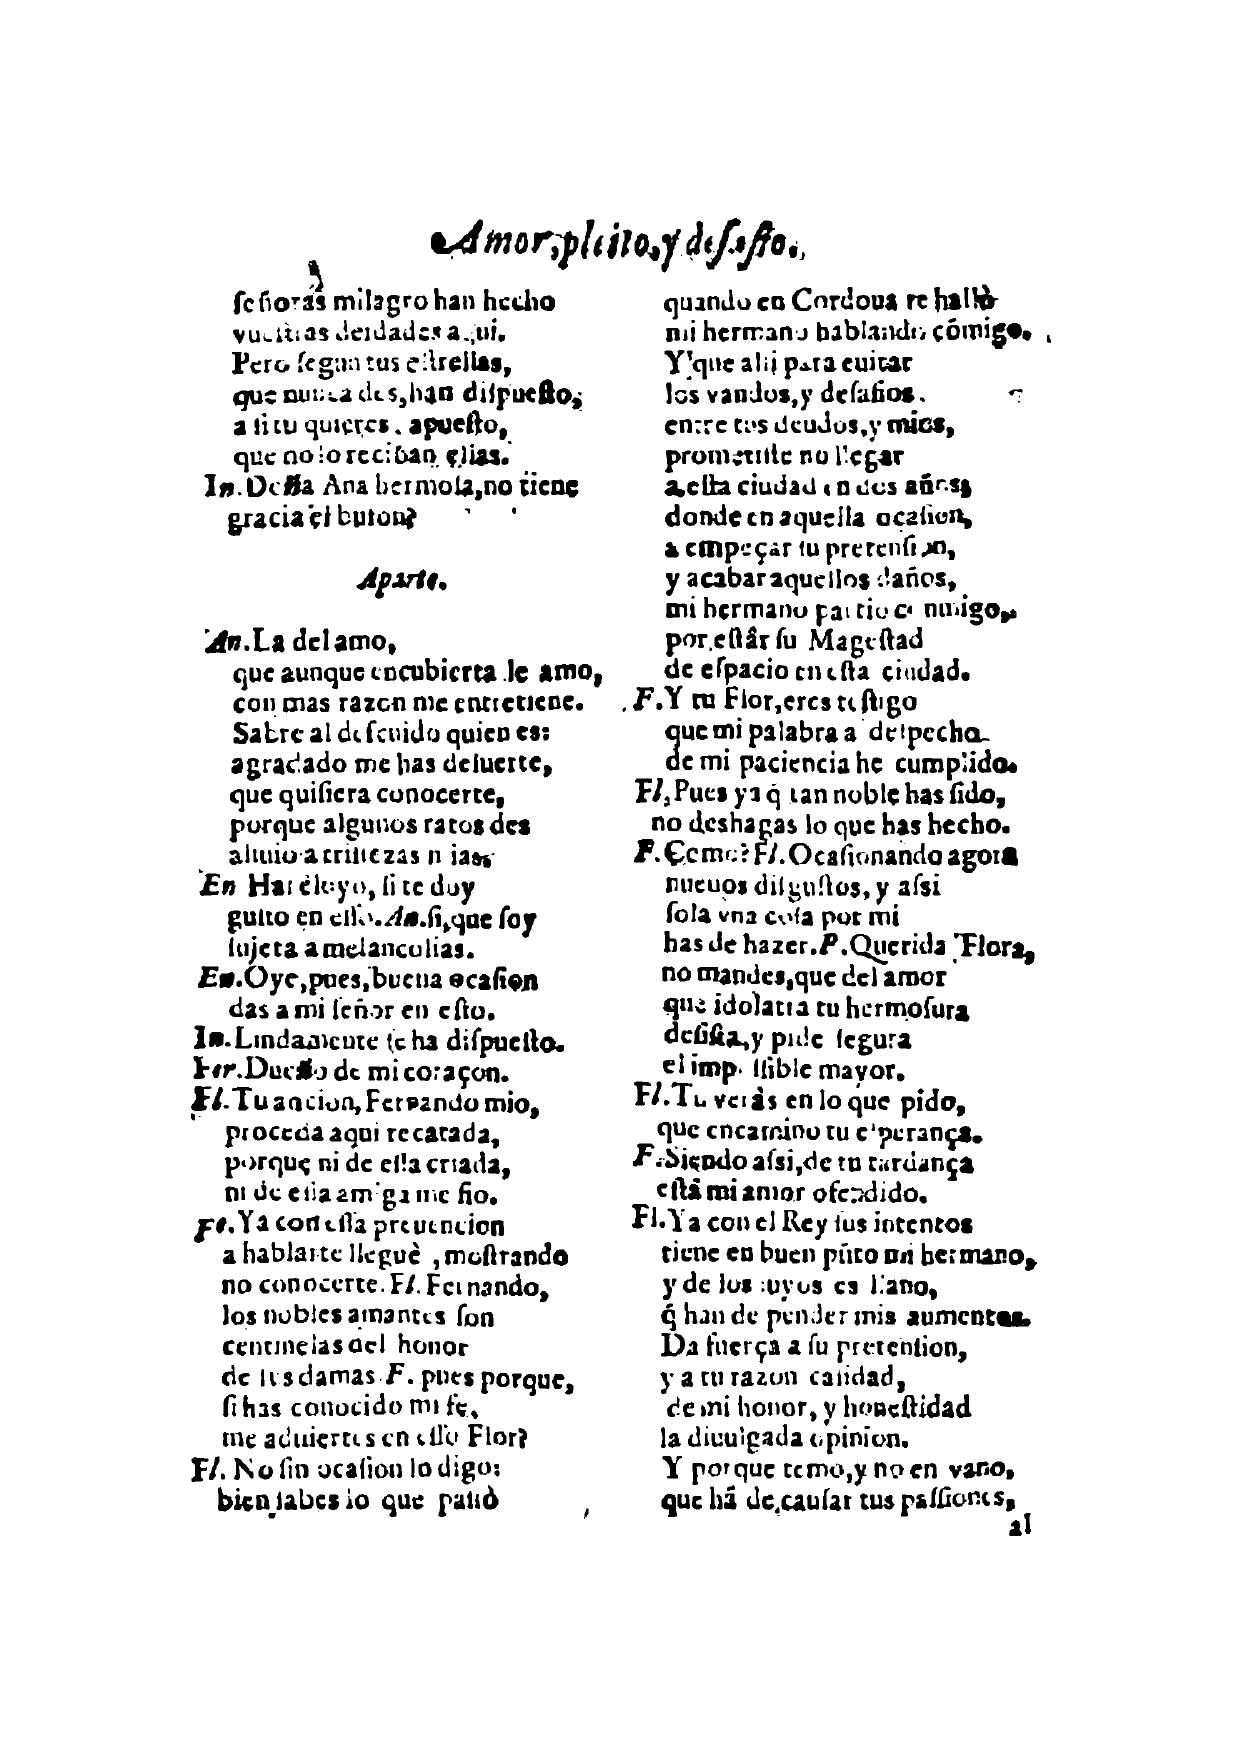 Amor, pleito, y desafio.
señoras milagro han hecho
vuestras deidades aqui.
Pero segun tus estrellas,
que nunca des, han dispuesto,
a ti tu quieres. apuesto,
que no lo reciban ellas.
In. Doña Ana hermosa, no tiene
gracia el buſon?
Aparte.
An. La del amo,
que aunque encubierta le amo,
con mas razon me entretiene.
Sabre al deſcuido quien es:
agradado me has deſuerte,
que quiſiera conocerte,
porque algunos ratos des
aliuio a triſtezas mias.
En Harélo yo, ſi te doy
guſto en eſſo. An. ſi, que ſoy
ſujeta a melancolias.
En. Oye, pues, buena ocaſion
das a mi ſeñor en eſto.
In. Lindamente ſe ha diſpueſto.
Fer. Dueño de mi coraçon.
Fl. Tu ancion, Fernando mio,
proceda aqui recatada,
porque ni de eſſa criada,
ni de eſſa amiga me fio.
Fe. Ya con eſſa preuencion
a hablarte lleguè, moſtrando
no conocerte. Fl. Fernando,
los nobles amantes ſon
centinelas del honor
de ſus damas. F. pues porque,
ſi has conocido mi fè,
me aduiertes en eſſo Flor?
Fl. No ſin ocaſion lo digo:
bien ſabes lo que paſsò
quando en Cordoua te hallò
mi hermano hablando cõmigo.
Y que alli para euitar
los vandos, y deſafios.
entre tus deudos, y mios,
prometiſte no llegar
a eſta ciudad en dos años,
donde en aquella ocaſion,
a empeçar ſu pretenſion,
y acabar aquellos daños,
mi hermano partio conmigo,
por eſtâr ſu Mageſtad
de eſpacio en eſta ciudad.
F. Y tu Flor, eres teſtigo
que mi palabra a deſpecho
de mi paciencia he cumplido.
Fl, Pues ya q̃ tan noble has ſido,
no deshagas lo que has hecho.
F. Como? Fl. Ocaſionando agora
nueuos diſguſtos, y aſsi
ſola vna coſa por mi
has de hazer. F. Querida Flora,
no mandes, que del amor
que idolatra tu hermoſura
deſiſta, y pide ſegura
el impoſsible mayor.
Fl. Tu veràs en lo que pido,
que encamino tu eſperança.
F. Siendo aſsi, de tu tardança
eſtá mi amor ofendido.
Fl. Ya con el Rey ſus intentos
tiene en buen pũto mi hermano,
y de los ſuyos es llano,
q̃ han de pender mis aumentos.
Da fuerça a ſu pretenſion,
y a tu razon calidad,
de mi honor, y honeſtidad
la diuulgada opinion.
Y porque temo, y no en vano,
que hã de cauſar tus paſſiones,
al